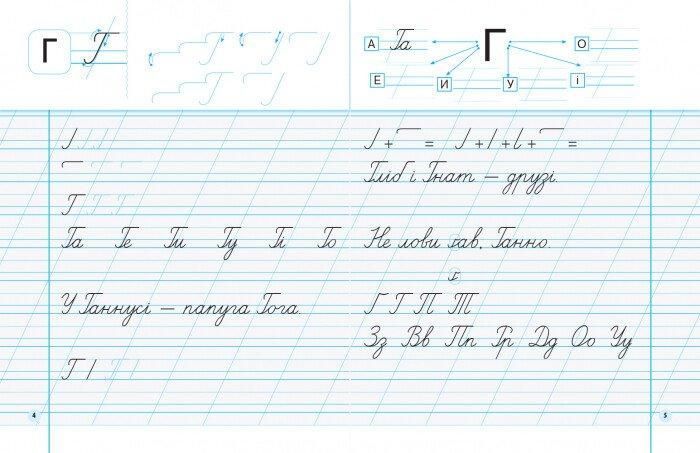 Г Г
Г
Га Ге Ги Гу Гі Го
У Ганнусі — папуга Гога.
Г /
4
А Га Г О
Е И У і
+ = + + + =
Гліб і Гнат — друзі.
Не лови ґав, Ганно.
ґ
Г Г П Т
Зз Вв Пп Рр Дд Оо Уу
5